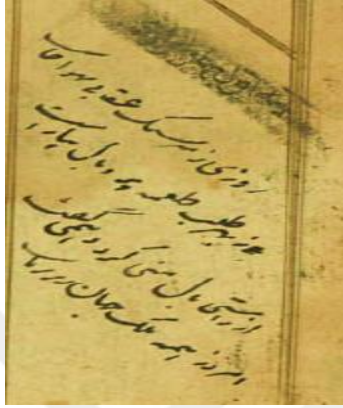 روزی ز سر سنگ عقابی بهوا خاست
از بهر طلب طعمه پر و بال بیاراست
از راستی بال منی کرد و همی گفت
امروز همه ملک جهان زیر پر ماست